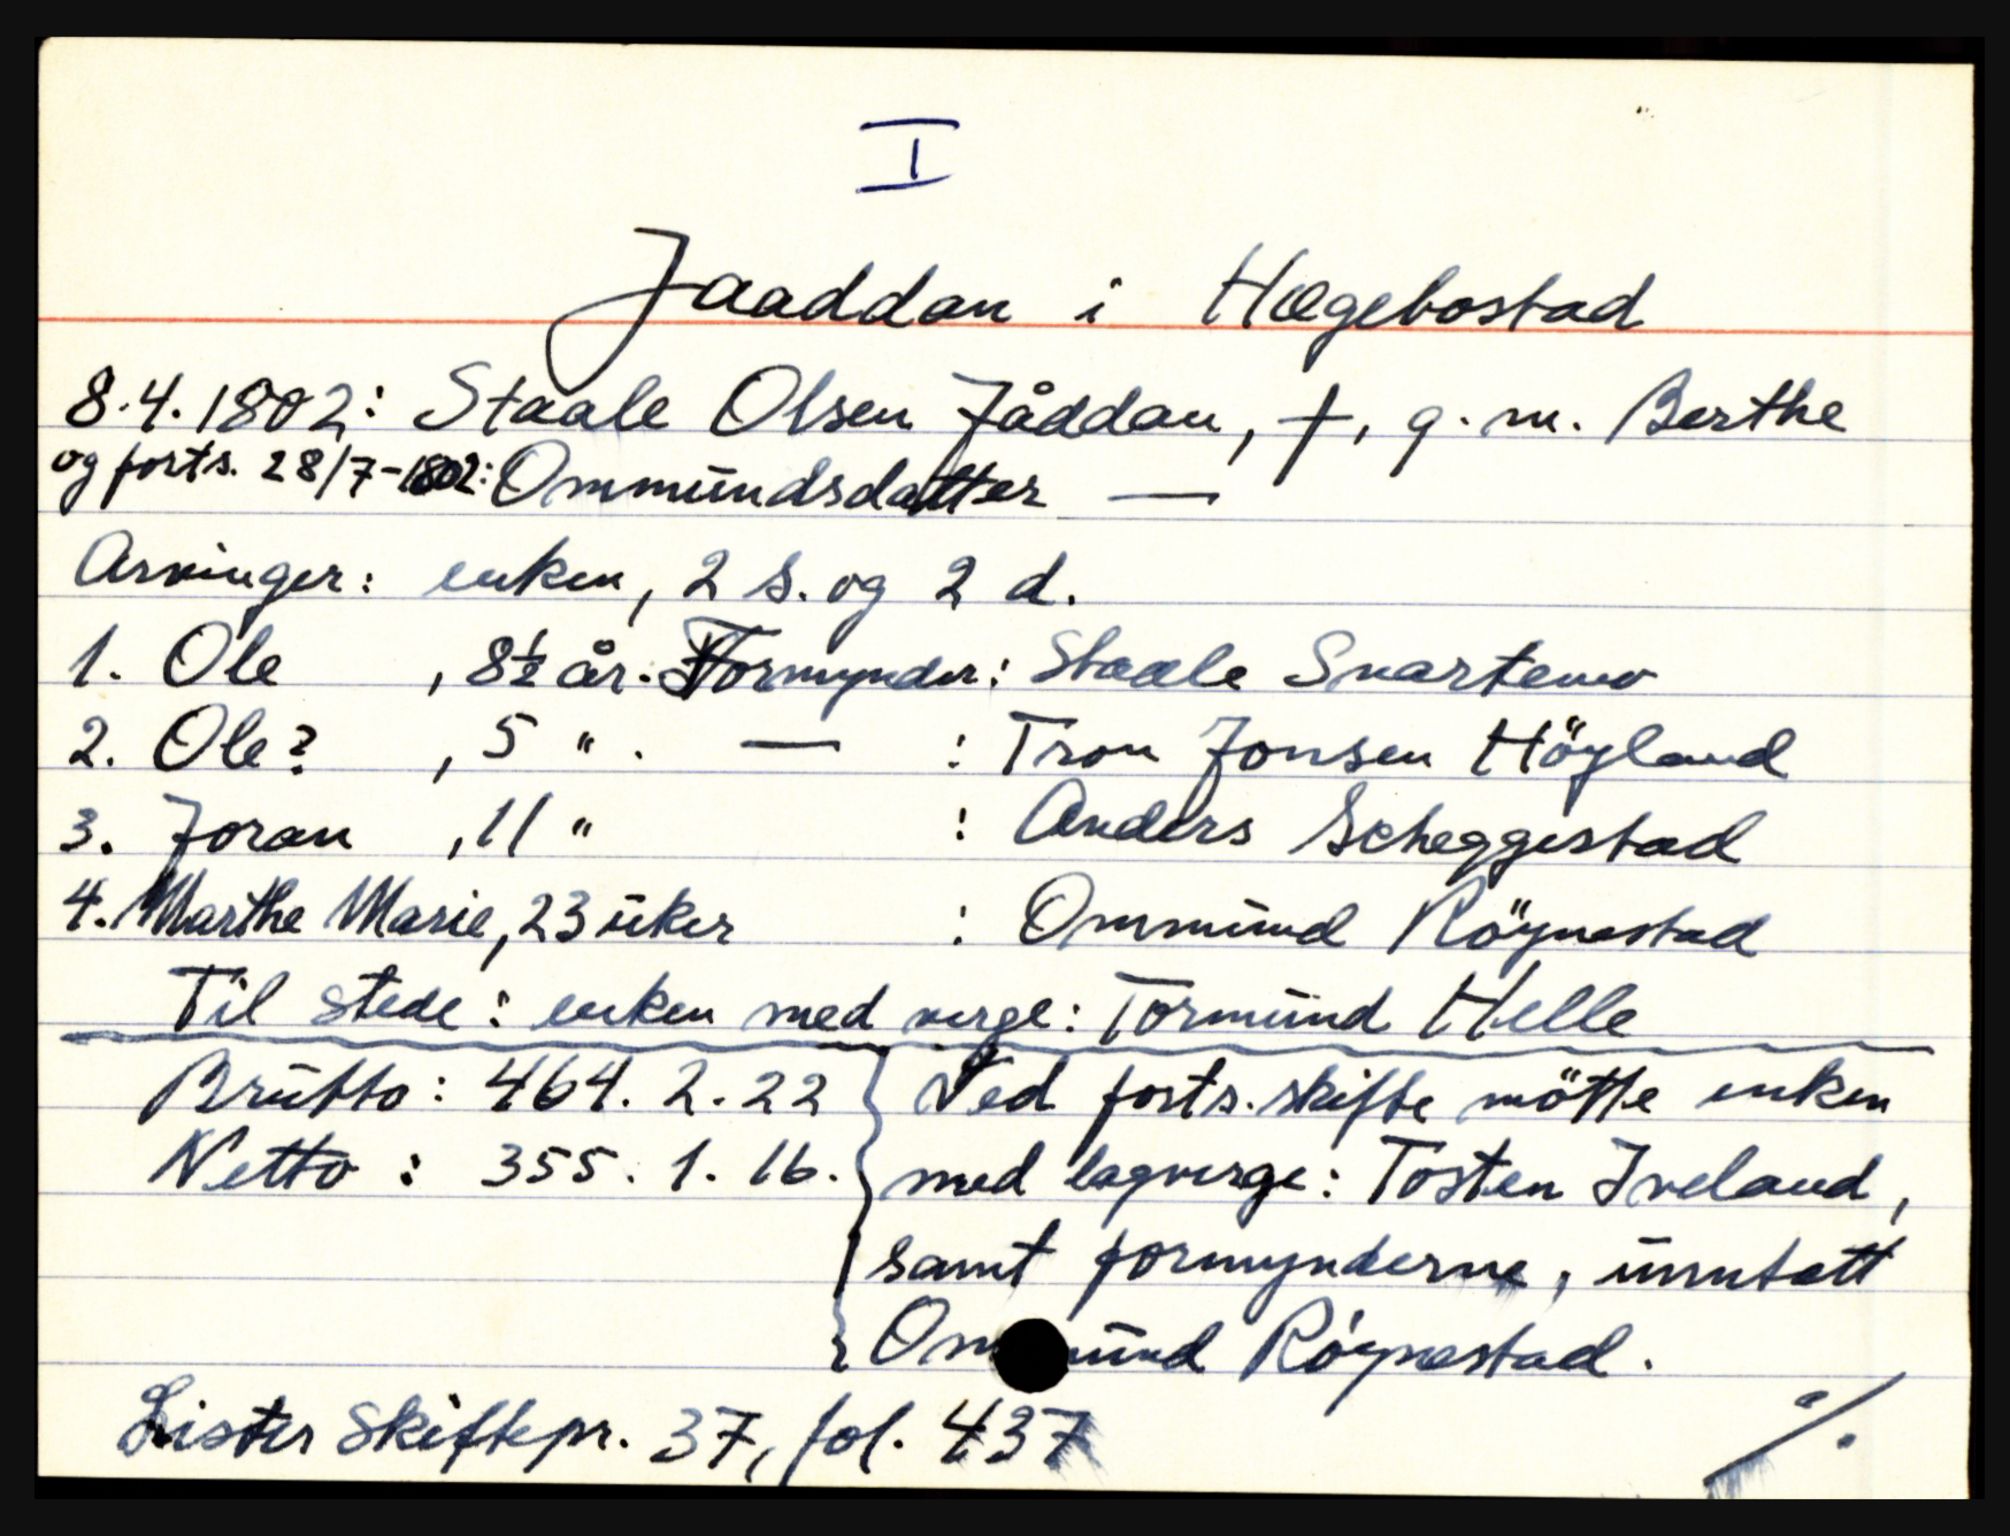 I
Jaaddan i Hægebostad
8.4.1802: Staale Olsen Jåddan, †, g.m. Berthe
og forts. 28/7-1802: Ommundsdatter —
Arvinger: enken, 2 s. og 2 d.
1. Ole , 8½ år. Formynder: Staale Snartemo
2. Ole? , 5 " . — : Tron Jonsen Höyland
3. Joran , 11 " : Anders Scheggestad
4. Marthe Marie, 23 uker : Ommund Röynestad
Til stede: enken med verge: Tormund Helle
Brutto: 464. 2. 22
Netto : 355. 1. 16.
Ved forts. skifte mötte enken
med lagverge: Tosten Iveland,
samt formynderne, unntatt
Ommund Röynestad.
Lister Skiftepr. 37, fol. 437
./.